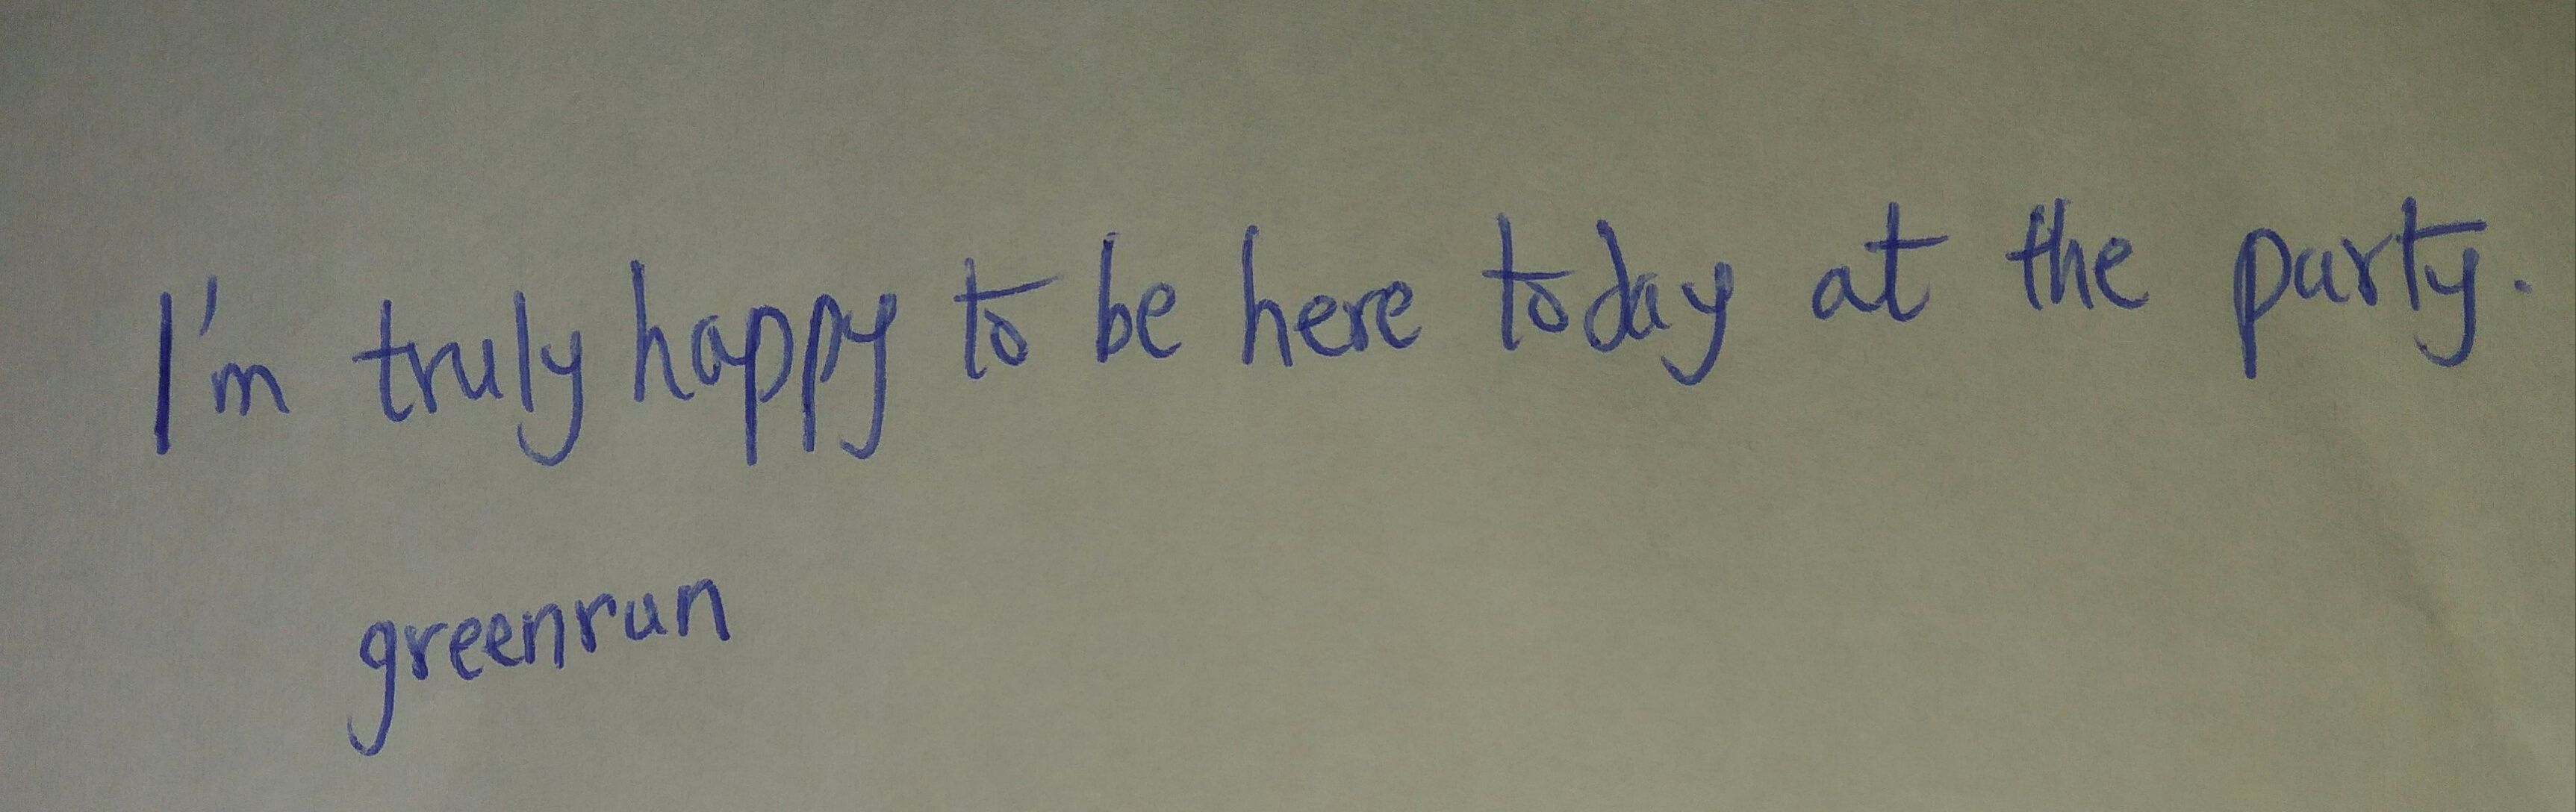 I'm truly happy to be here today at the party.
greenrun